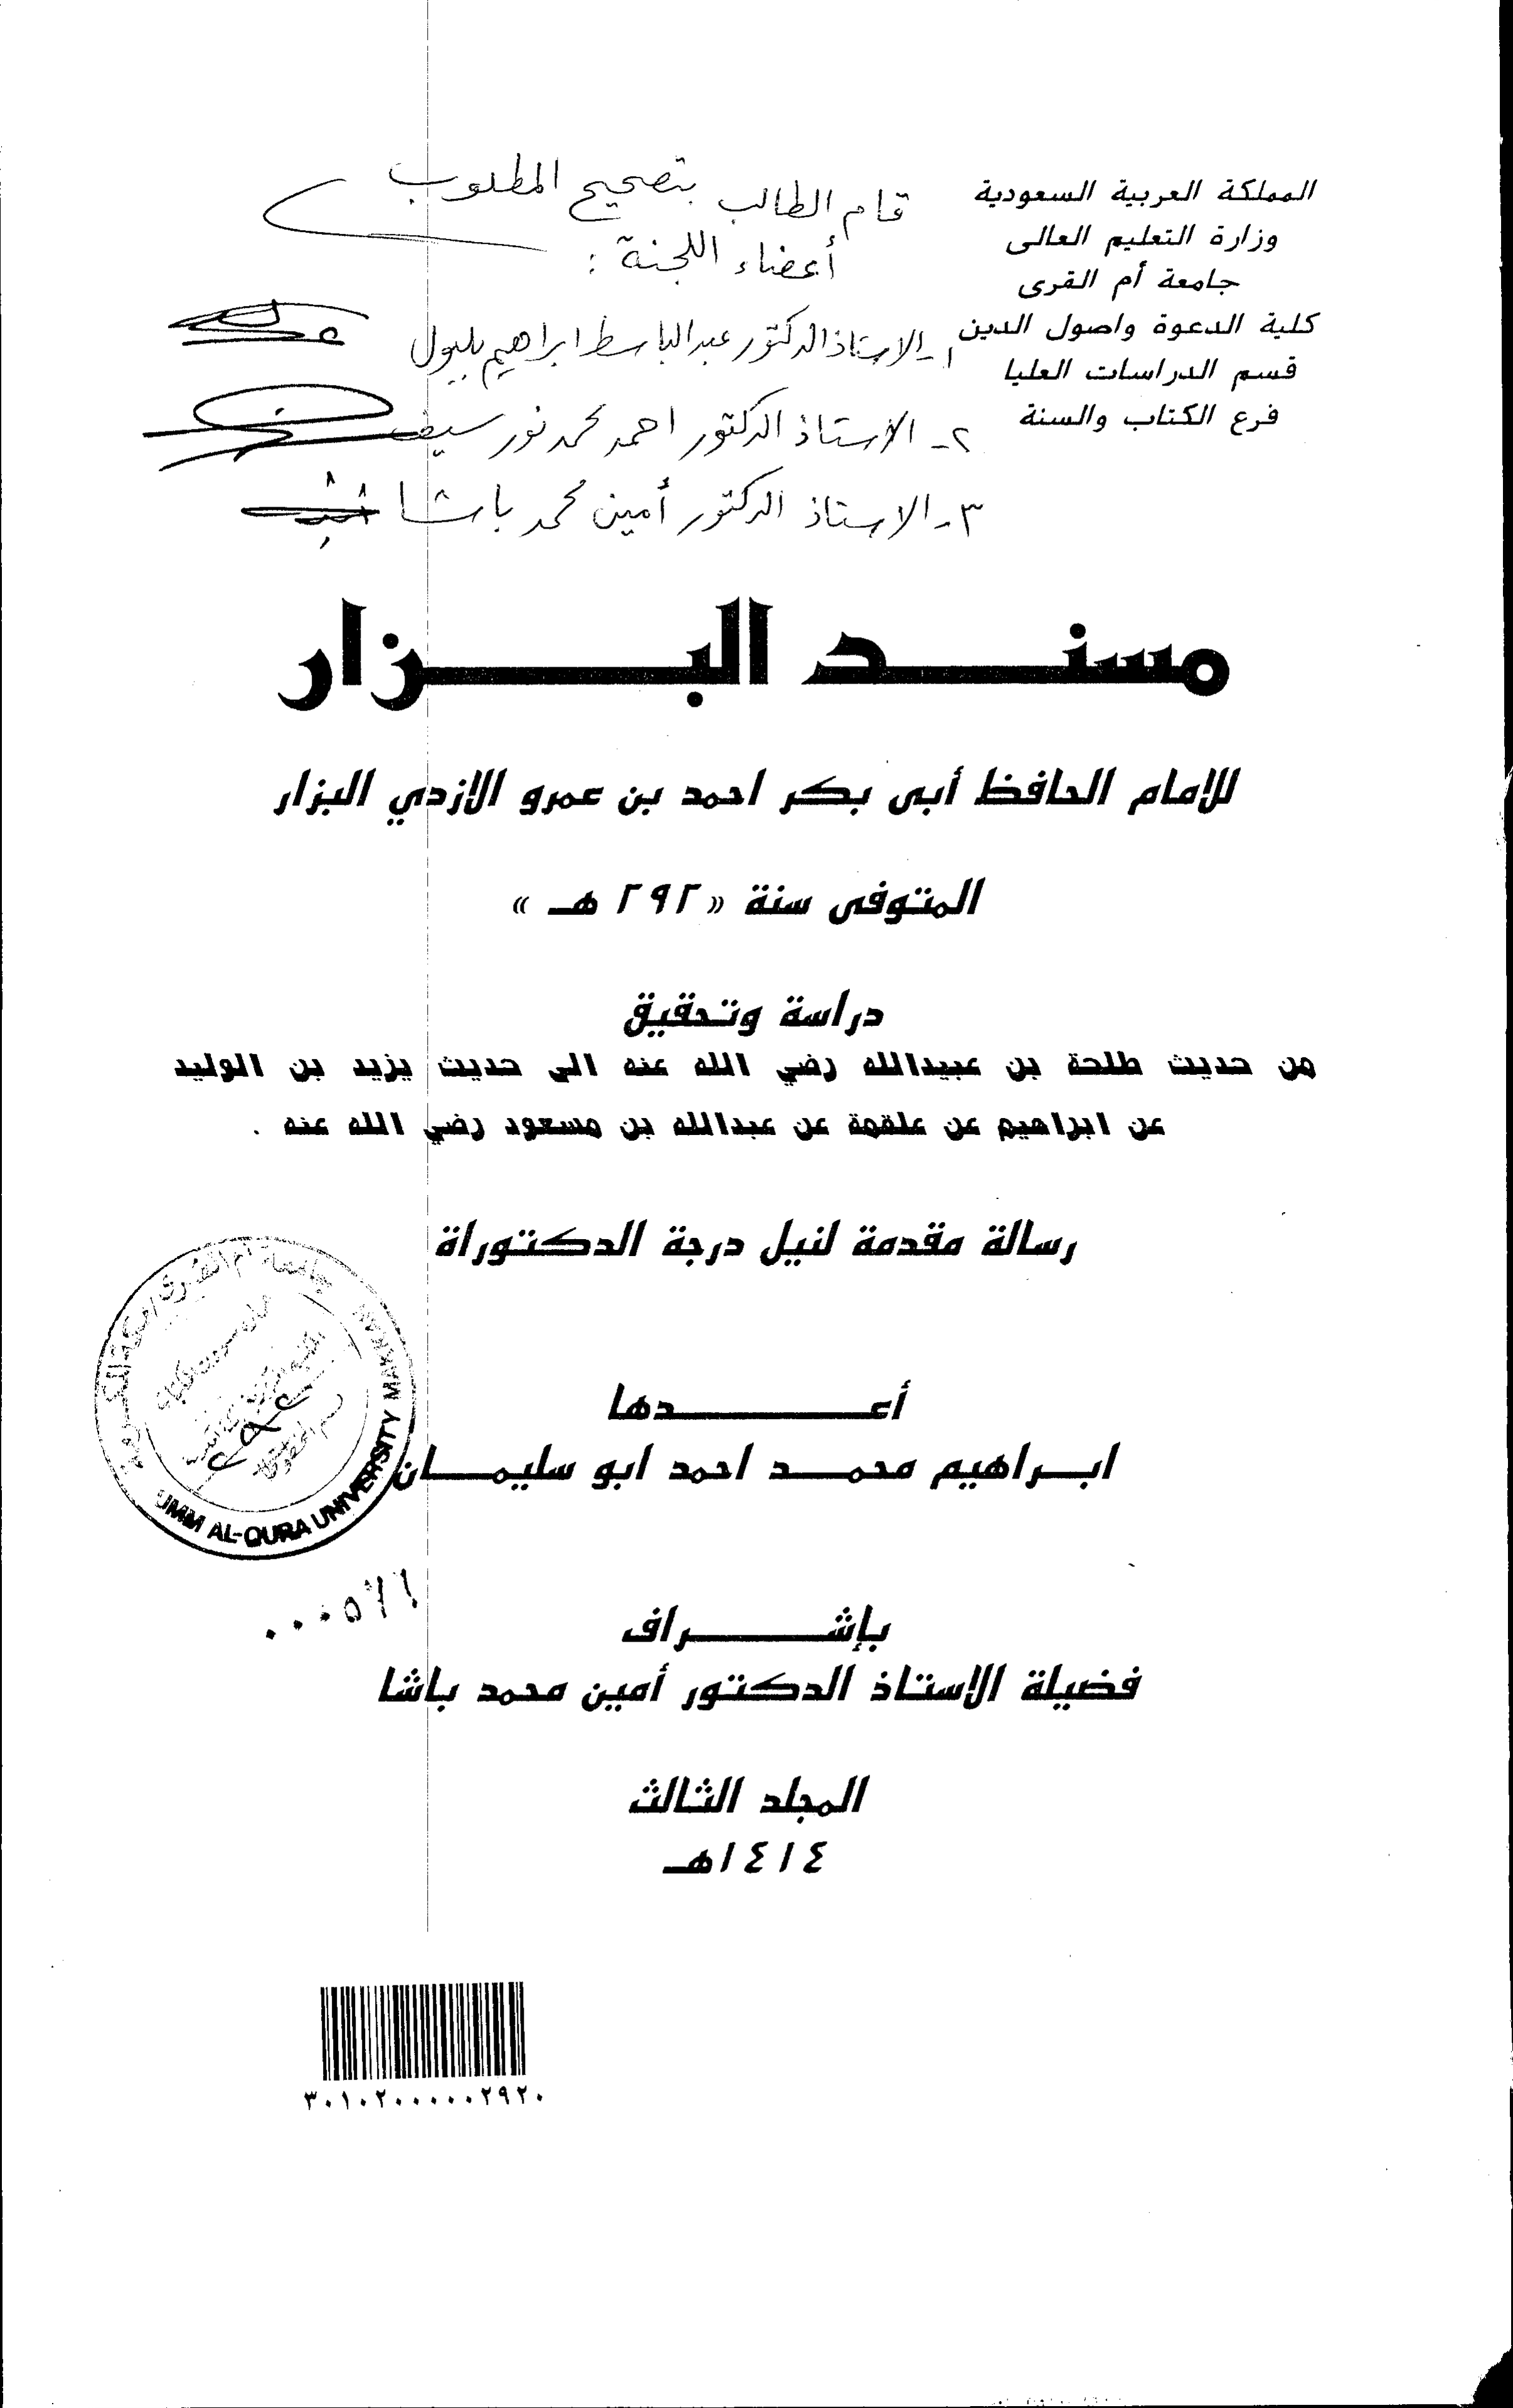 المملكة العربية السعودية
وزارة التعليم العالى
جامعة أم القرى
كلية الدعوة واصول الدين
قسم الدراسات العليا
فرع الكتاب والسنة
قام الطالب بتصحيح المطلوب
أعضاء اللجنة :
١- الاستاذ الدكتور عبد الباسط ابراهيم بلبول
٢- الاستاذ الدكتور احمد محمد نور سيف
٣- الاستاذ الدكتور أمين محمد باشا
مسند البزار
للإمام الحافظ أبى بكر احمد بن عمرو الازدي البزار
المتوفى سنة «٢٩٢ هـ »
دراسة وتحقيق
من حديث طلحة بن عبيدالله رضي الله عنه الى حديث يزيد بن الوليد
عن ابراهيم عن علقمة عن عبدالله بن مسعود رضي الله عنه .
رسالة مقدمة لنيل درجة الدكتوراة
جامعة أم القرى مكة المكرمة
UMM AL-QURA UNIVERSITY MAKKAH
أعدها
ابراهيم محمد احمد ابو سليمان
بإشراف
فضيلة الاستاذ الدكتور أمين محمد باشا
المجلد الثالث
١٤١٤هـ
٣٠١٠٢٠٠٠٠٠٢٩٢٠